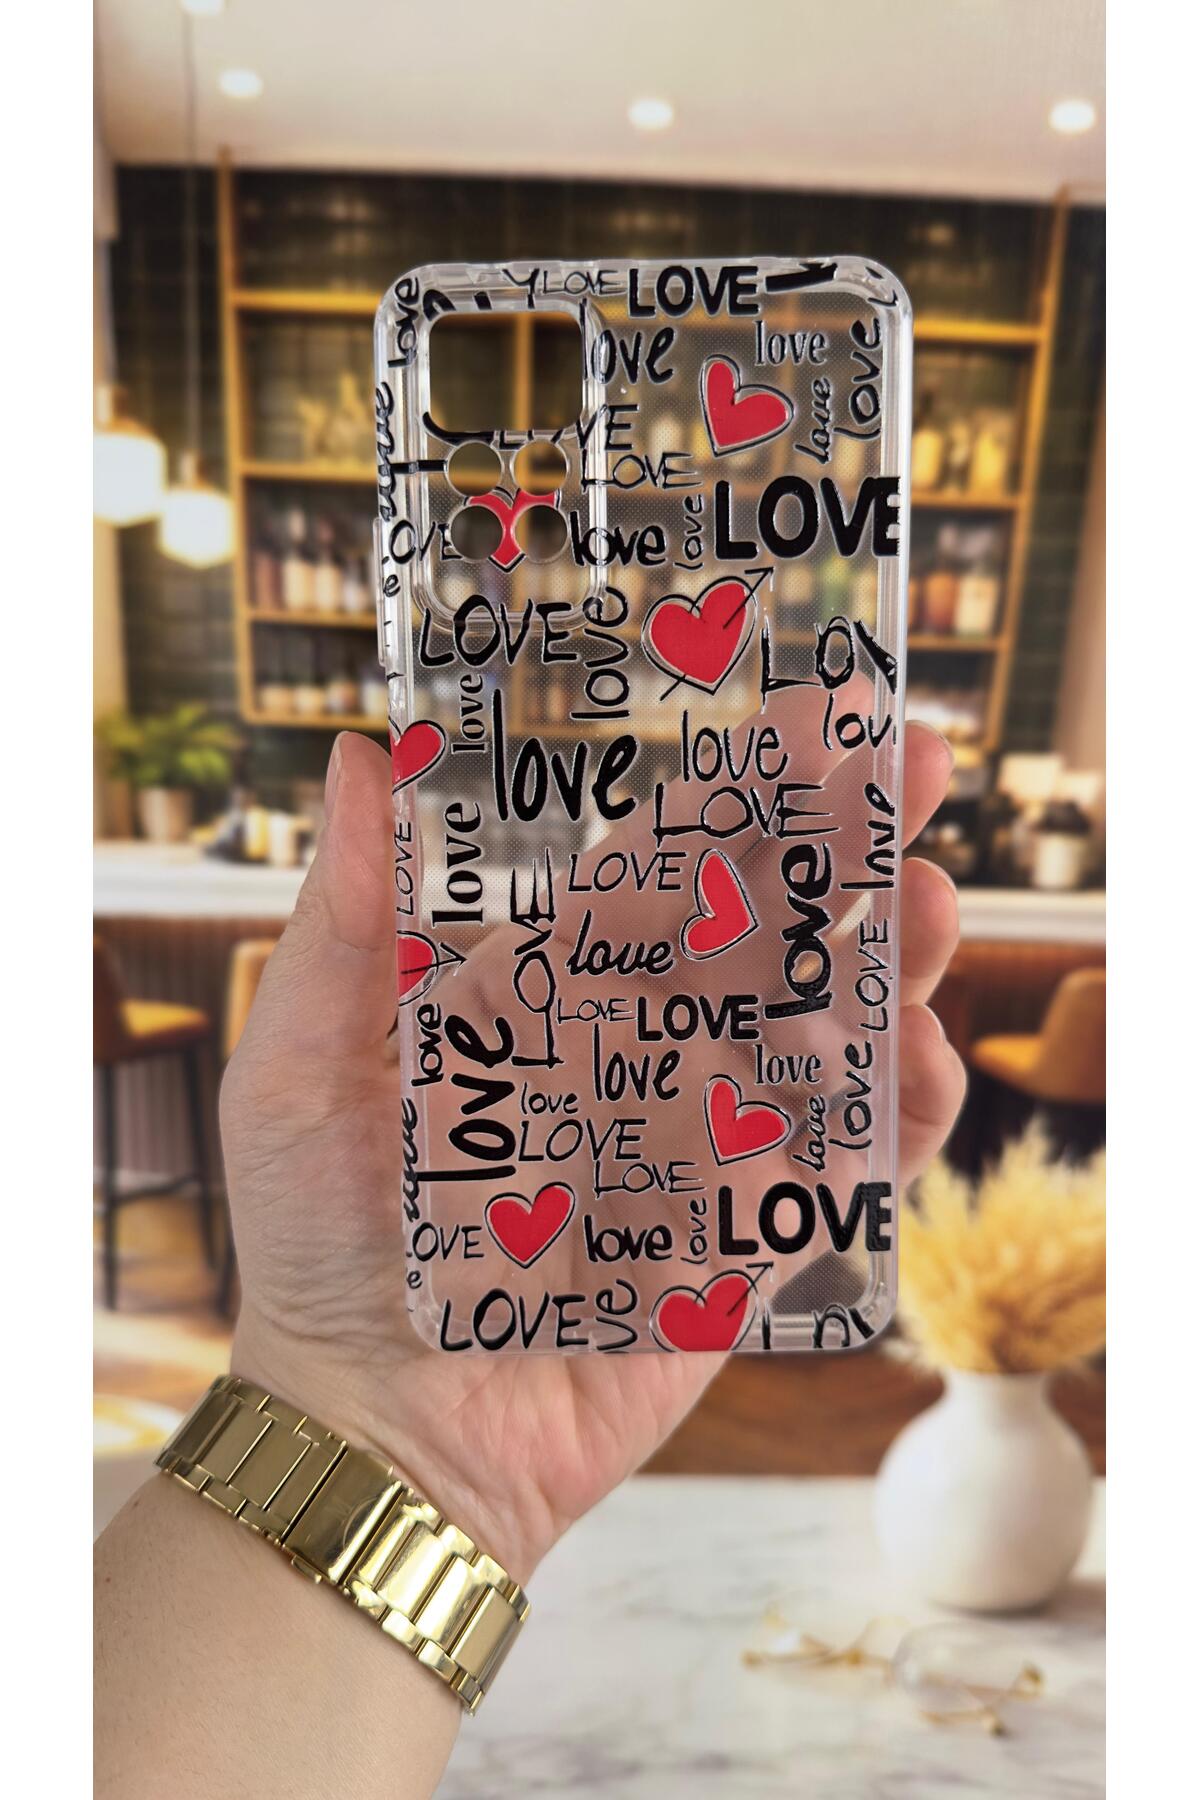 LOVE LOVE
love
love
love
love
love
LOVE
LOVE
love
love
love
LOVE
LOVE
love
love
love
love
LOVE
love
LOVE
LOVE
love
LOVE
love
love
LOVE
LOVE LOVE
love
love
love
love
love
love
love
LOVE
LOVE
love
love
LOVE
LOVE